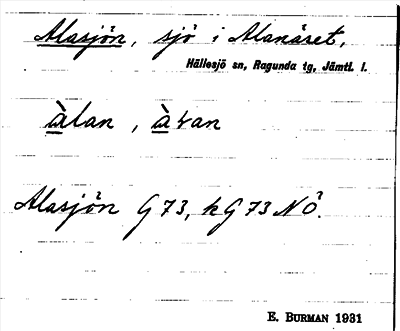 Alasjön, sjö i Alanäset,
Hällesjö sn, Ragunda tg, Jämtl. l.
àlan, àɽan
Alasjön G 73, kG 73 NÖ.
E. BURMAN 1931